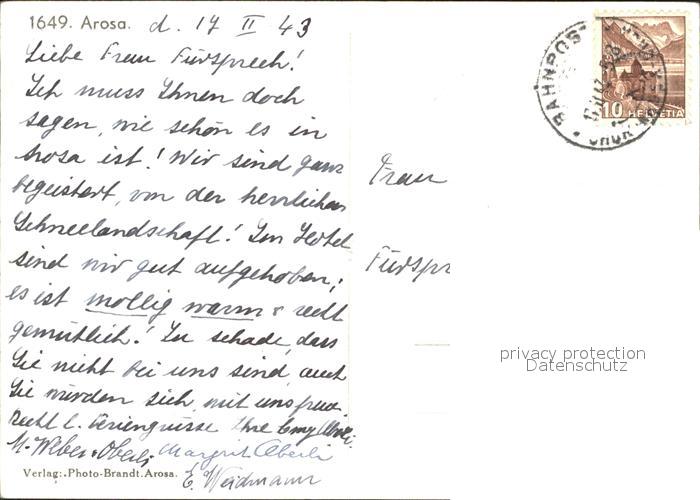 1649. Arosa. d. 17 II 43
Liebe Frau Fürsprech!
Ich muss Ihnen doch
sagen, wie schön es in
Arosa ist! Wir sind ganz
begeistert, von der herrlichen
Schneelandschaft! Im Hotel
sind wir gut aufgehoben;
es ist mollig warm & recht
gemütlich! Zu schade, dass
Sie nicht bei uns sind, auch
Sie würden sich mit uns freuen.
Recht l. Feriengrüsse Ihre Emy
M. Weber-Oberli Margrit Oberli
E. Weidmann
Verlag: Photo-Brandt. Arosa.
Frau
Fürspr
BAHNPOST
CHUR
10 HELVETIA
privacy protection
Datenschutz